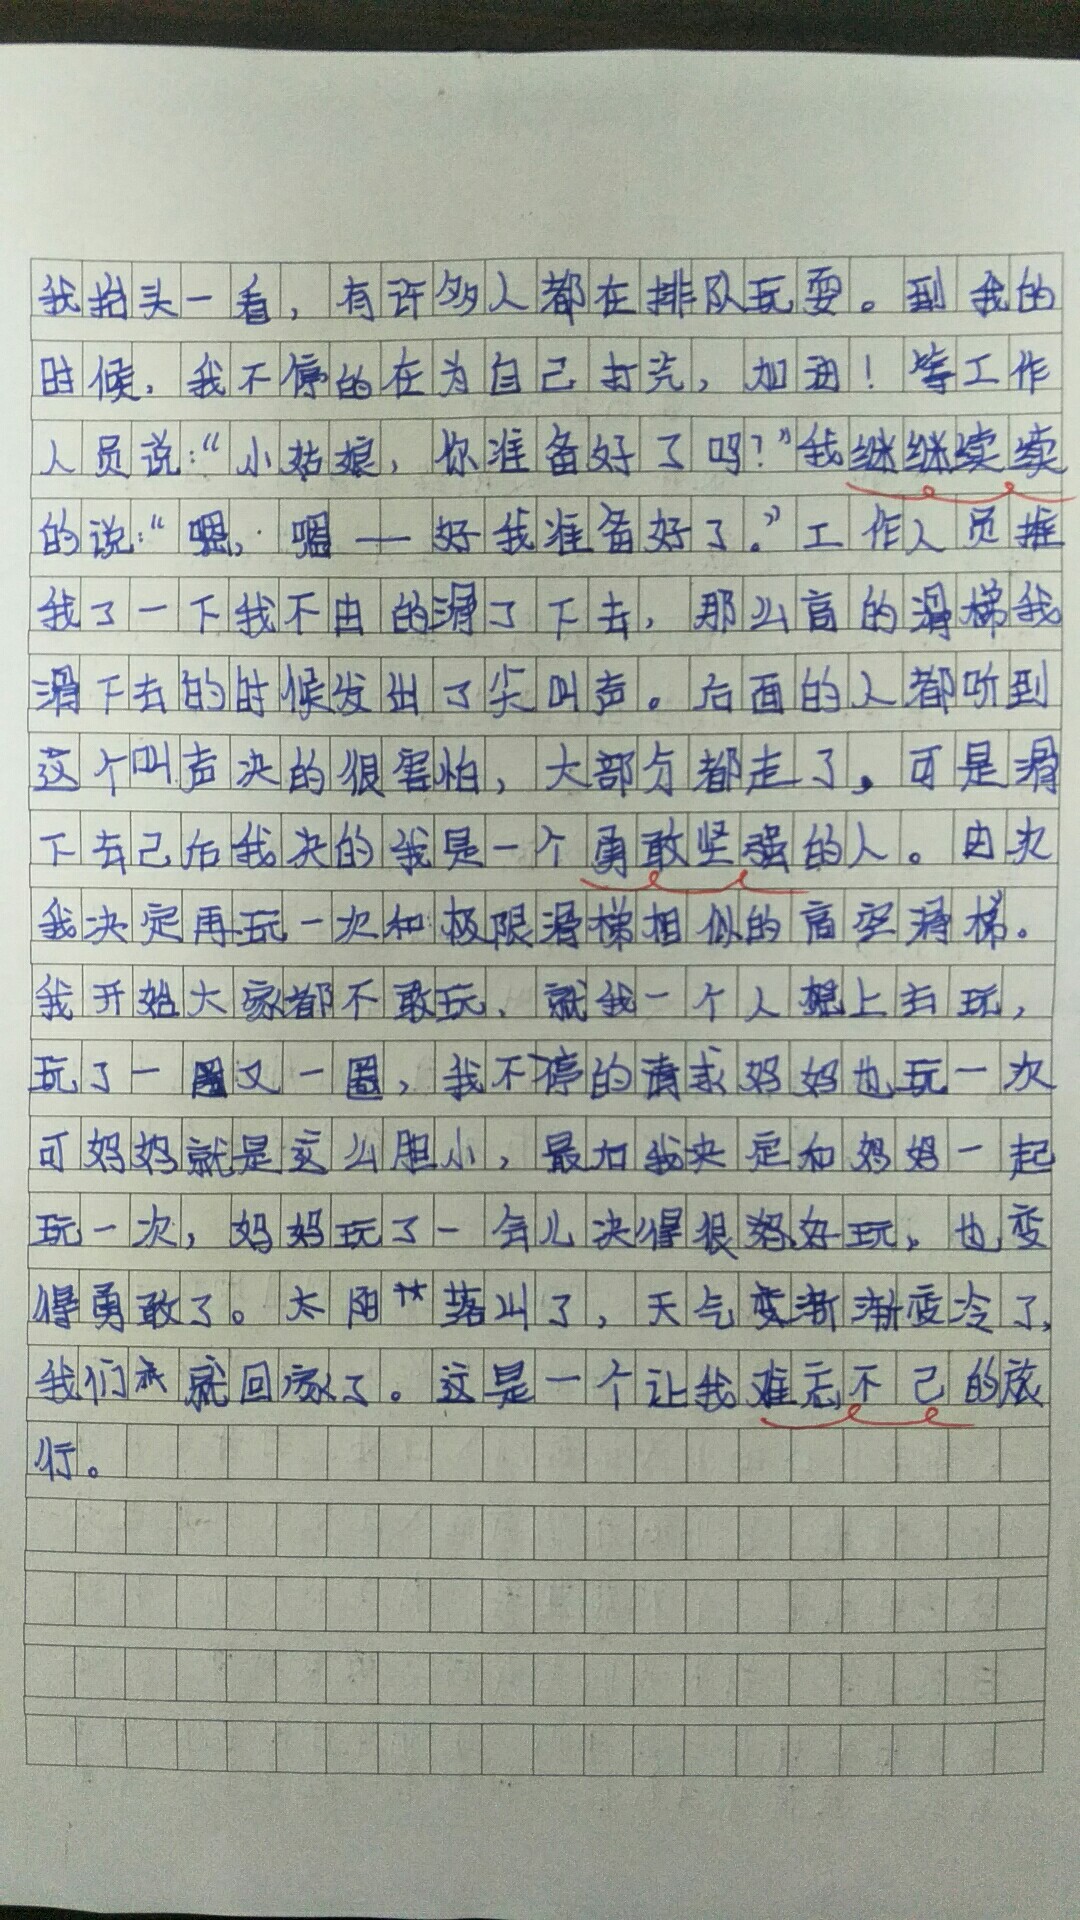 我抬头一看，有许多人都在排队玩耍。到我的
时候，我不停的在为自己打气，加油！等工作
人员说：“小姑娘，你准备好了吗？”我继继续续
的说：“嗯，嗯——好我准备好了。”工作人员推
我了一下我不由的滑了下去，那么高的滑梯我
滑下去的时候发出了尖叫声。后面的人都听到
这个叫声决的很害怕，大部分都走了，可是滑
下去己后我决的我是一个勇敢坚强的人。由次
我决定再玩一次和极限滑梯相似的高空滑梯。
我开始大家都不敢玩，就我一个人上去玩，
玩了一圈又一圈，我不停的请求妈妈也玩一次
可妈妈就是这么胆小，最加我决定和妈妈一起
玩一次，妈妈玩了一会儿决得很好玩，也变
得勇敢了。太阳落山了，天气渐渐变冷了，
我们就回家了。这是一个让我难忘不己的旅
行。